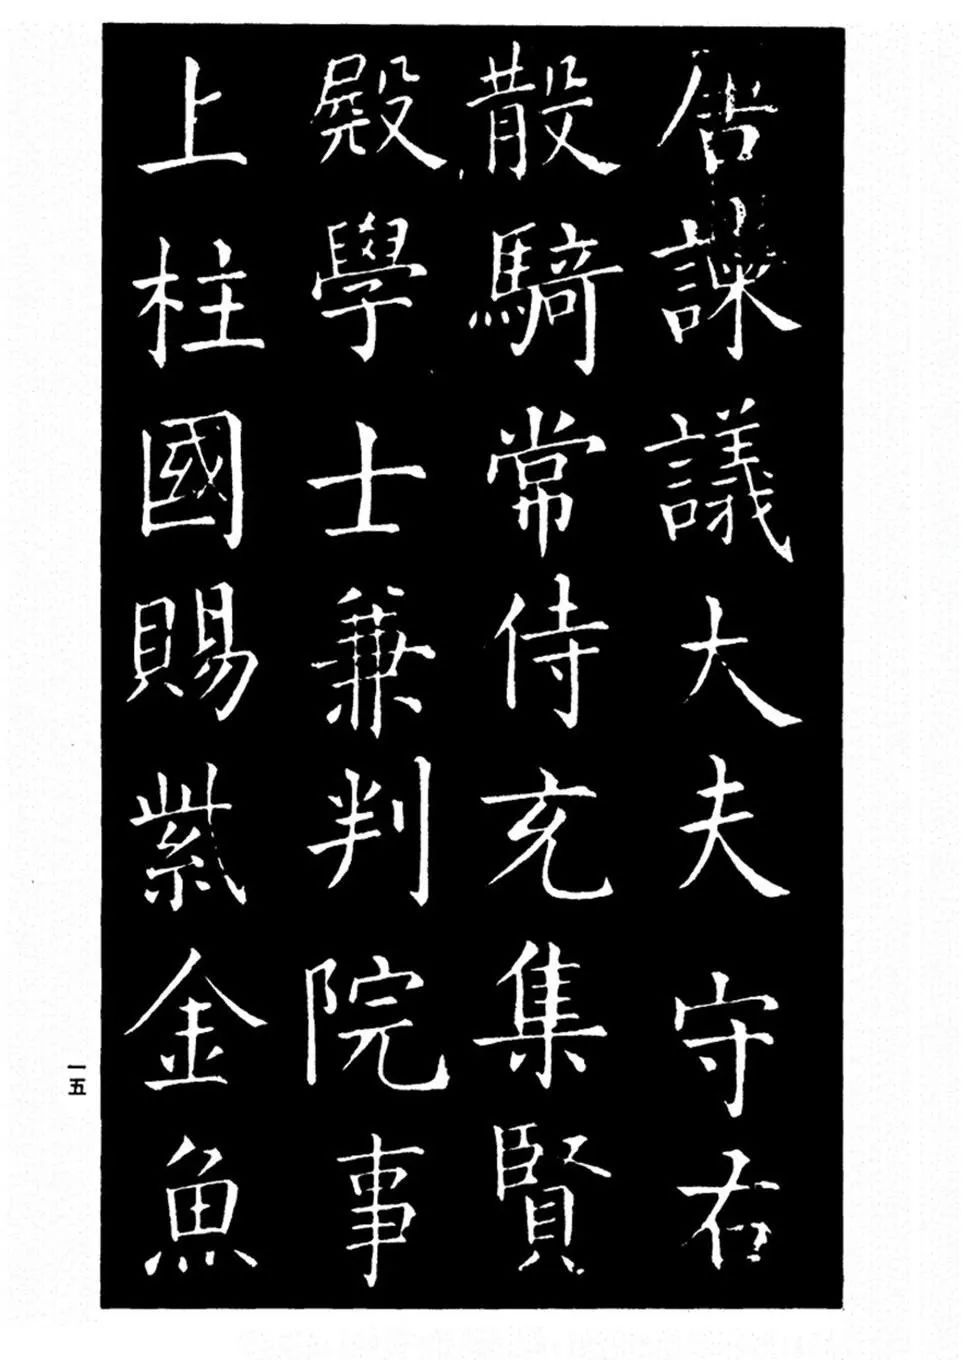 諫議大夫守右
散騎常侍充集賢
殿學士兼判院事
上柱國賜紫金魚
一五